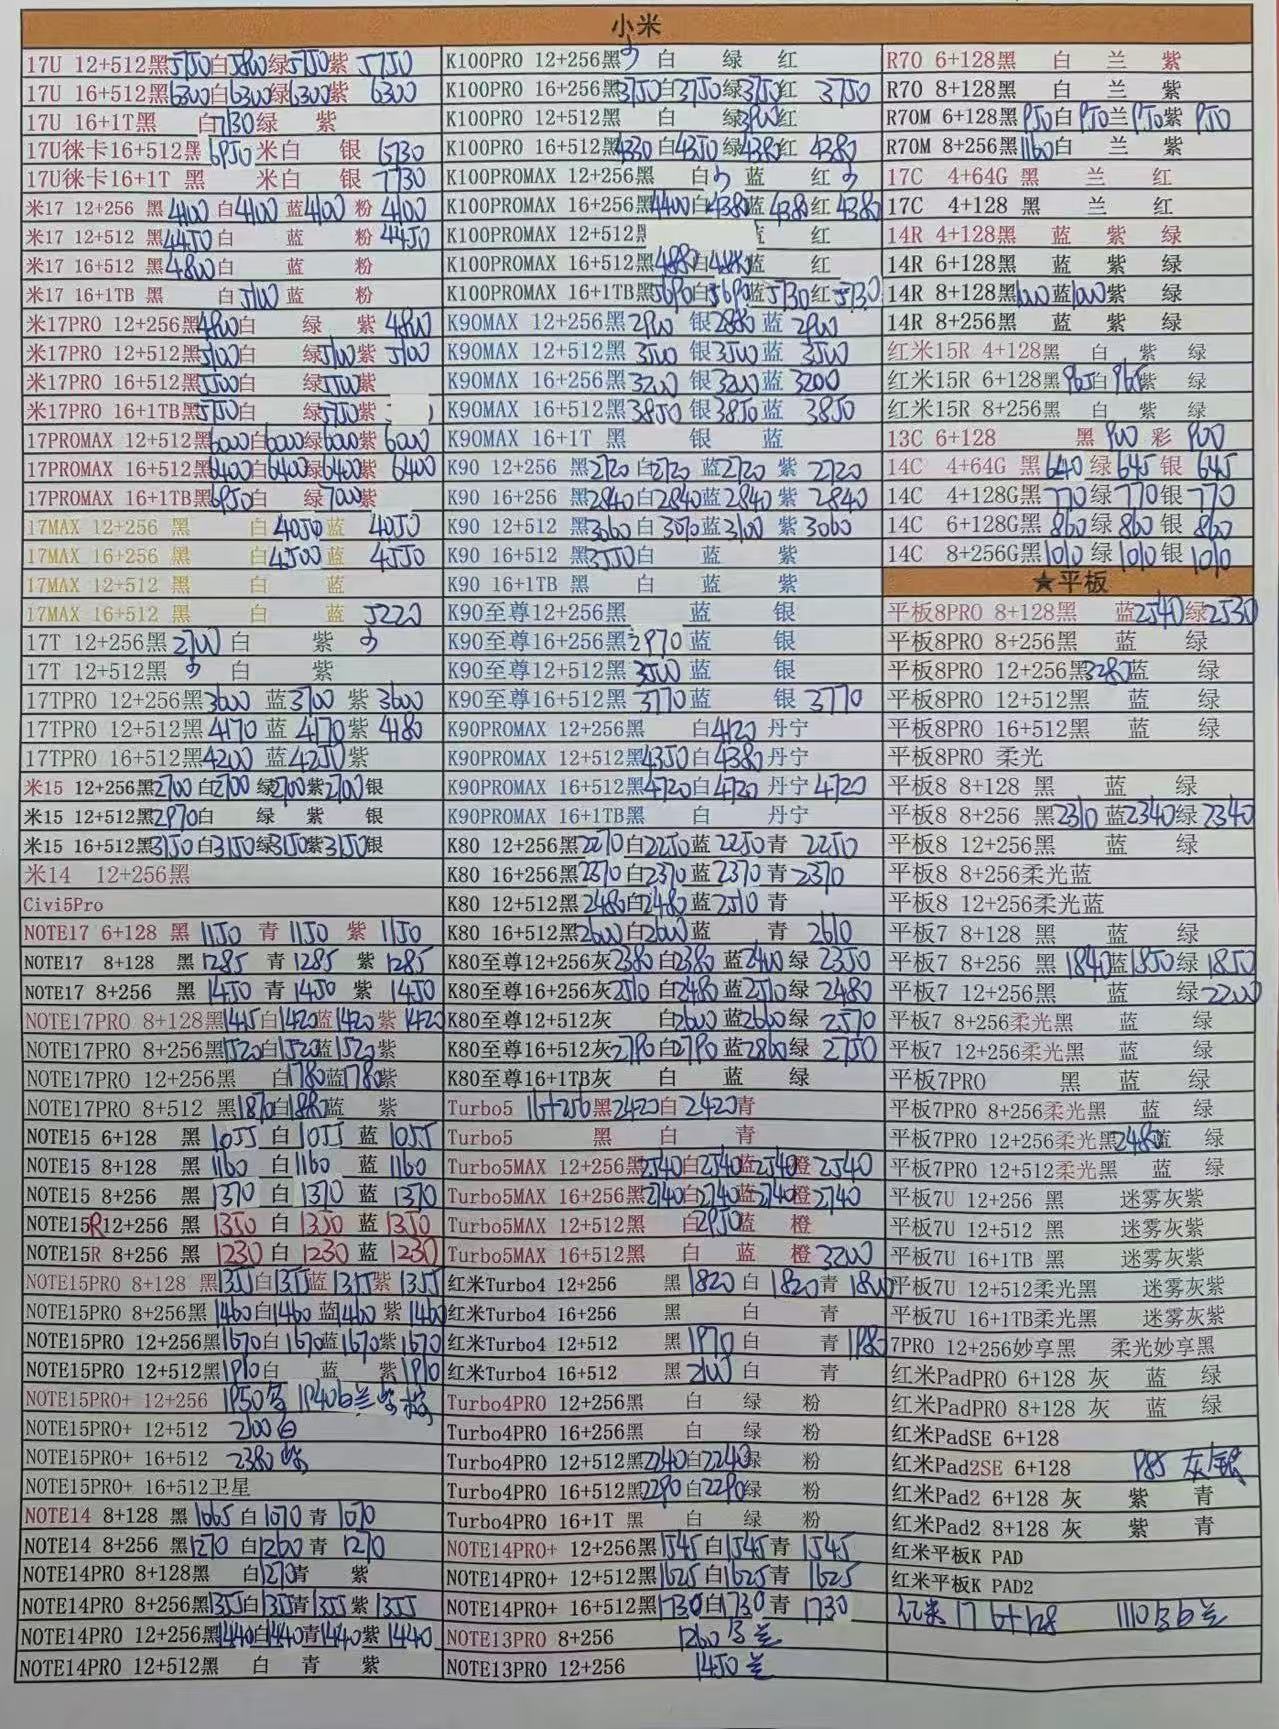 小米
17U 12+512黑5750白5800绿5750紫 5750
17U 16+512黑6300白6300绿6300紫 6300
17U 16+1T黑 白7130绿 紫
17U徕卡16+512黑 6950 米白 银 6730
17U徕卡16+1T 黑 米白 银 7730
米17 12+256 黑4100 白4100 蓝4100 粉 4100
米17 12+512 黑4450白 蓝 粉 4450
米17 16+512 黑4800白 蓝 粉
米17 16+1TB 黑 白5100 蓝 粉
米17PRO 12+256黑4800白 绿 紫 4800
米17PRO 12+512黑5100白 绿5100紫 5100
米17PRO 16+512黑5500白 绿5500紫
米17PRO 16+1TB黑5750白 绿5750紫
17PROMAX 12+512黑6000白6000绿6000紫 6000
17PROMAX 16+512黑6400白6400绿6400紫 6400
17PROMAX 16+1TB黑6950白 绿7000紫
17MAX 12+256 黑 白4050蓝 4050
17MAX 16+256 黑 白4500蓝 4550
17MAX 12+512 黑 白 蓝
17MAX 16+512 黑 白 蓝 5220
17T 12+256黑2700 白 紫
17T 12+512黑 白 紫
17TPRO 12+256黑3600 蓝3700 紫 3600
17TPRO 12+512黑4170 蓝 4170 紫 4180
17TPRO 16+512黑4200 蓝4250紫
米15 12+256黑2700白2700 绿2700紫2700银
米15 12+512黑2970白 绿 紫 银
米15 16+512黑3150白3150绿3150紫3150银
米14 12+256黑
Civi5Pro
NOTE17 6+128 黑 1150 青 1150 紫 1150
NOTE17 8+128 黑 1285 青 1285 紫 1285
NOTE17 8+256 黑 1450 青 1450 紫 1450
NOTE17PRO 8+128黑1415白1420蓝1420紫 1420
NOTE17PRO 8+256黑1520白1520蓝1520紫
NOTE17PRO 12+256黑 白1780蓝1780紫
NOTE17PRO 8+512 黑1870白1880蓝 紫
NOTE15 6+128 黑 1055 白 1055 蓝 1055
NOTE15 8+128 黑 1160 白1160 蓝 1160
NOTE15 8+256 黑 1370 白 1370 蓝 1370
NOTE15R12+256 黑 1350 白 1350 蓝 1350
NOTE15R 8+256 黑 1230 白 1230 蓝 1230
NOTE15PRO 8+128 黑1355白1355蓝1355紫 1355
NOTE15PRO 8+256黑1460白1460 蓝1460 紫 1460
NOTE15PRO 12+256黑1670白1670蓝1670紫 1670
NOTE15PRO 12+512黑1910白 蓝 紫 1910
NOTE15PRO+ 12+256 1950 1940白兰紫
NOTE15PRO+ 12+512 2100白
NOTE15PRO+ 16+512 2380
NOTE15PRO+ 16+512卫星
NOTE14 8+128 黑 1065 白 1070 青 1070
NOTE14 8+256 黑1270 白1260 青 1270
NOTE14PRO 8+128黑 白1270青 紫
NOTE14PRO 8+256黑1355白1355青1355紫 1355
NOTE14PRO 12+256黑1440白1440青1440紫 1440
NOTE14PRO 12+512黑 白 青 紫
K100PRO 12+256黑 白 绿 红
K100PRO 16+256黑3750白3750绿3750红 3750
K100PRO 12+512黑 白 绿3900红
K100PRO 16+512黑4330白4350绿4380红 4380
K100PROMAX 12+256黑 白 蓝 红
K100PROMAX 16+256黑4400白4380蓝4380红4380
K100PROMAX 12+512 红
K100PROMAX 16+512黑 白 蓝 红
K100PROMAX 16+1TB黑5690白5690蓝5730红5730
K90MAX 12+256黑2900 银2880蓝 2900
K90MAX 12+512黑3500 银3500蓝 3500
K90MAX 16+256黑3200 银3200蓝 3200
K90MAX 16+512黑3850 银3850蓝 3850
K90MAX 16+1T 黑 银 蓝
K90 12+256 黑2720白2720 蓝2720 紫 2720
K90 16+256 黑2840白2840蓝2840 紫 2840
K90 12+512 黑3060白3070蓝3100 紫3060
K90 16+512 黑3550白 蓝 紫
K90 16+1TB 黑 白 蓝 紫
K90至尊12+256黑 蓝 银
K90至尊16+256黑2970 蓝 银
K90至尊12+512黑3500 蓝 银
K90至尊16+512黑3770 蓝 银 3770
K90PROMAX 12+256黑 白4120 丹宁
K90PROMAX 12+512黑4350白4380 丹宁
K90PROMAX 16+512黑4720白4720 丹宁4720
K90PROMAX 16+1TB黑 白 丹宁
K80 12+256黑2270白2250蓝 2250青 2250
K80 16+256黑2370白2370蓝2370 青 2370
K80 12+512黑2480白2480蓝2510 青
K80 16+512黑2600白2600蓝 青 2610
K80至尊12+256灰2380 白2380 蓝2400绿 2350
K80至尊16+256灰2510 白2480蓝2510绿 2480
K80至尊12+512灰 白2600 蓝2660绿 2570
K80至尊16+512灰2790白2790 蓝2860绿 2750
K80至尊16+1TB灰 白 蓝 绿
Turbo5 16+256黑2420白2420青
Turbo5 黑 白 青
Turbo5MAX 12+256黑2540白2540蓝2540橙2540
Turbo5MAX 16+256黑2740白2740蓝2740橙2740
Turbo5MAX 12+512黑 白2950蓝 橙
Turbo5MAX 16+512黑 白 蓝 橙3200
红米Turbo4 12+256 黑 1820 白 1820青 1800
红米Turbo4 16+256 黑 白 青
红米Turbo4 12+512 黑 1970 白 青 1980
红米Turbo4 16+512 黑 白 青
Turbo4PRO 12+256黑 白 绿 粉
Turbo4PRO 16+256黑 白 绿 粉
Turbo4PRO 12+512黑2240白2240绿 粉
Turbo4PRO 16+512黑2290白2290绿 粉
Turbo4PRO 16+1T 黑 白 绿 粉
NOTE14PRO+ 12+256黑1545白1545青 1545
NOTE14PRO+ 12+512黑1625白1625青 1625
NOTE14PRO+ 16+512黑1730白1730 青 1730
NOTE13PRO 8+256 1260 兰
NOTE13PRO 12+256 1450 兰
R70 6+128黑 白 兰 紫
R70 8+128黑 白 兰 紫
R70M 6+128黑950白950兰950紫 950
R70M 8+256黑1160白 兰 紫
17C 4+64G 黑 兰 红
17C 4+128 黑 兰 红
14R 4+128黑 蓝 紫 绿
14R 6+128黑 蓝 紫 绿
14R 8+128黑1000蓝1000紫 绿
14R 8+256黑 蓝 紫 绿
红米15R 4+128黑 白 紫 绿
红米15R 6+128黑965白965紫 绿
红米15R 8+256黑 白 紫 绿
13C 6+128 黑 900 彩 900
14C 4+64G 黑640 绿 645 银 645
14C 4+128G黑770绿 770银 770
14C 6+128G黑860绿 860 银 860
14C 8+256G黑1010 绿 1010银 1010
★平板
平板8PRO 8+128黑 蓝2540绿2530
平板8PRO 8+256黑 蓝 绿
平板8PRO 12+256黑3280蓝 绿
平板8PRO 12+512黑 蓝 绿
平板8PRO 16+512黑 蓝 绿
平板8PRO 柔光
平板8 8+128 黑 蓝 绿
平板8 8+256 黑2310 蓝2340绿 2340
平板8 12+256黑 蓝 绿
平板8 8+256柔光蓝
平板8 12+256柔光蓝
平板7 8+128 黑 蓝 绿
平板7 8+256 黑 1840蓝1850绿 1850
平板7 12+256黑 蓝 绿2200
平板7 8+256柔光黑 蓝 绿
平板7 12+256柔光黑 蓝 绿
平板7PRO 黑 蓝 绿
平板7PRO 8+256柔光黑 蓝 绿
平板7PRO 12+256柔光黑2480蓝 绿
平板7PRO 12+512柔光黑 蓝 绿
平板7U 12+256 黑 迷雾灰紫
平板7U 12+512 黑 迷雾灰紫
平板7U 16+1TB 黑 迷雾灰紫
平板7U 12+512柔光黑 迷雾灰紫
平板7U 16+1TB柔光黑 迷雾灰紫
7PRO 12+256妙享黑 柔光妙享黑
红米PadPRO 6+128 灰 蓝 绿
红米PadPRO 8+128 灰 蓝 绿
红米PadSE 6+128
红米Pad2SE 6+128 985 灰/银
红米Pad2 6+128 灰 紫 青
红米Pad2 8+128 灰 紫 青
红米平板K PAD
红米平板K PAD2
红米 17 6+128 1110 白兰